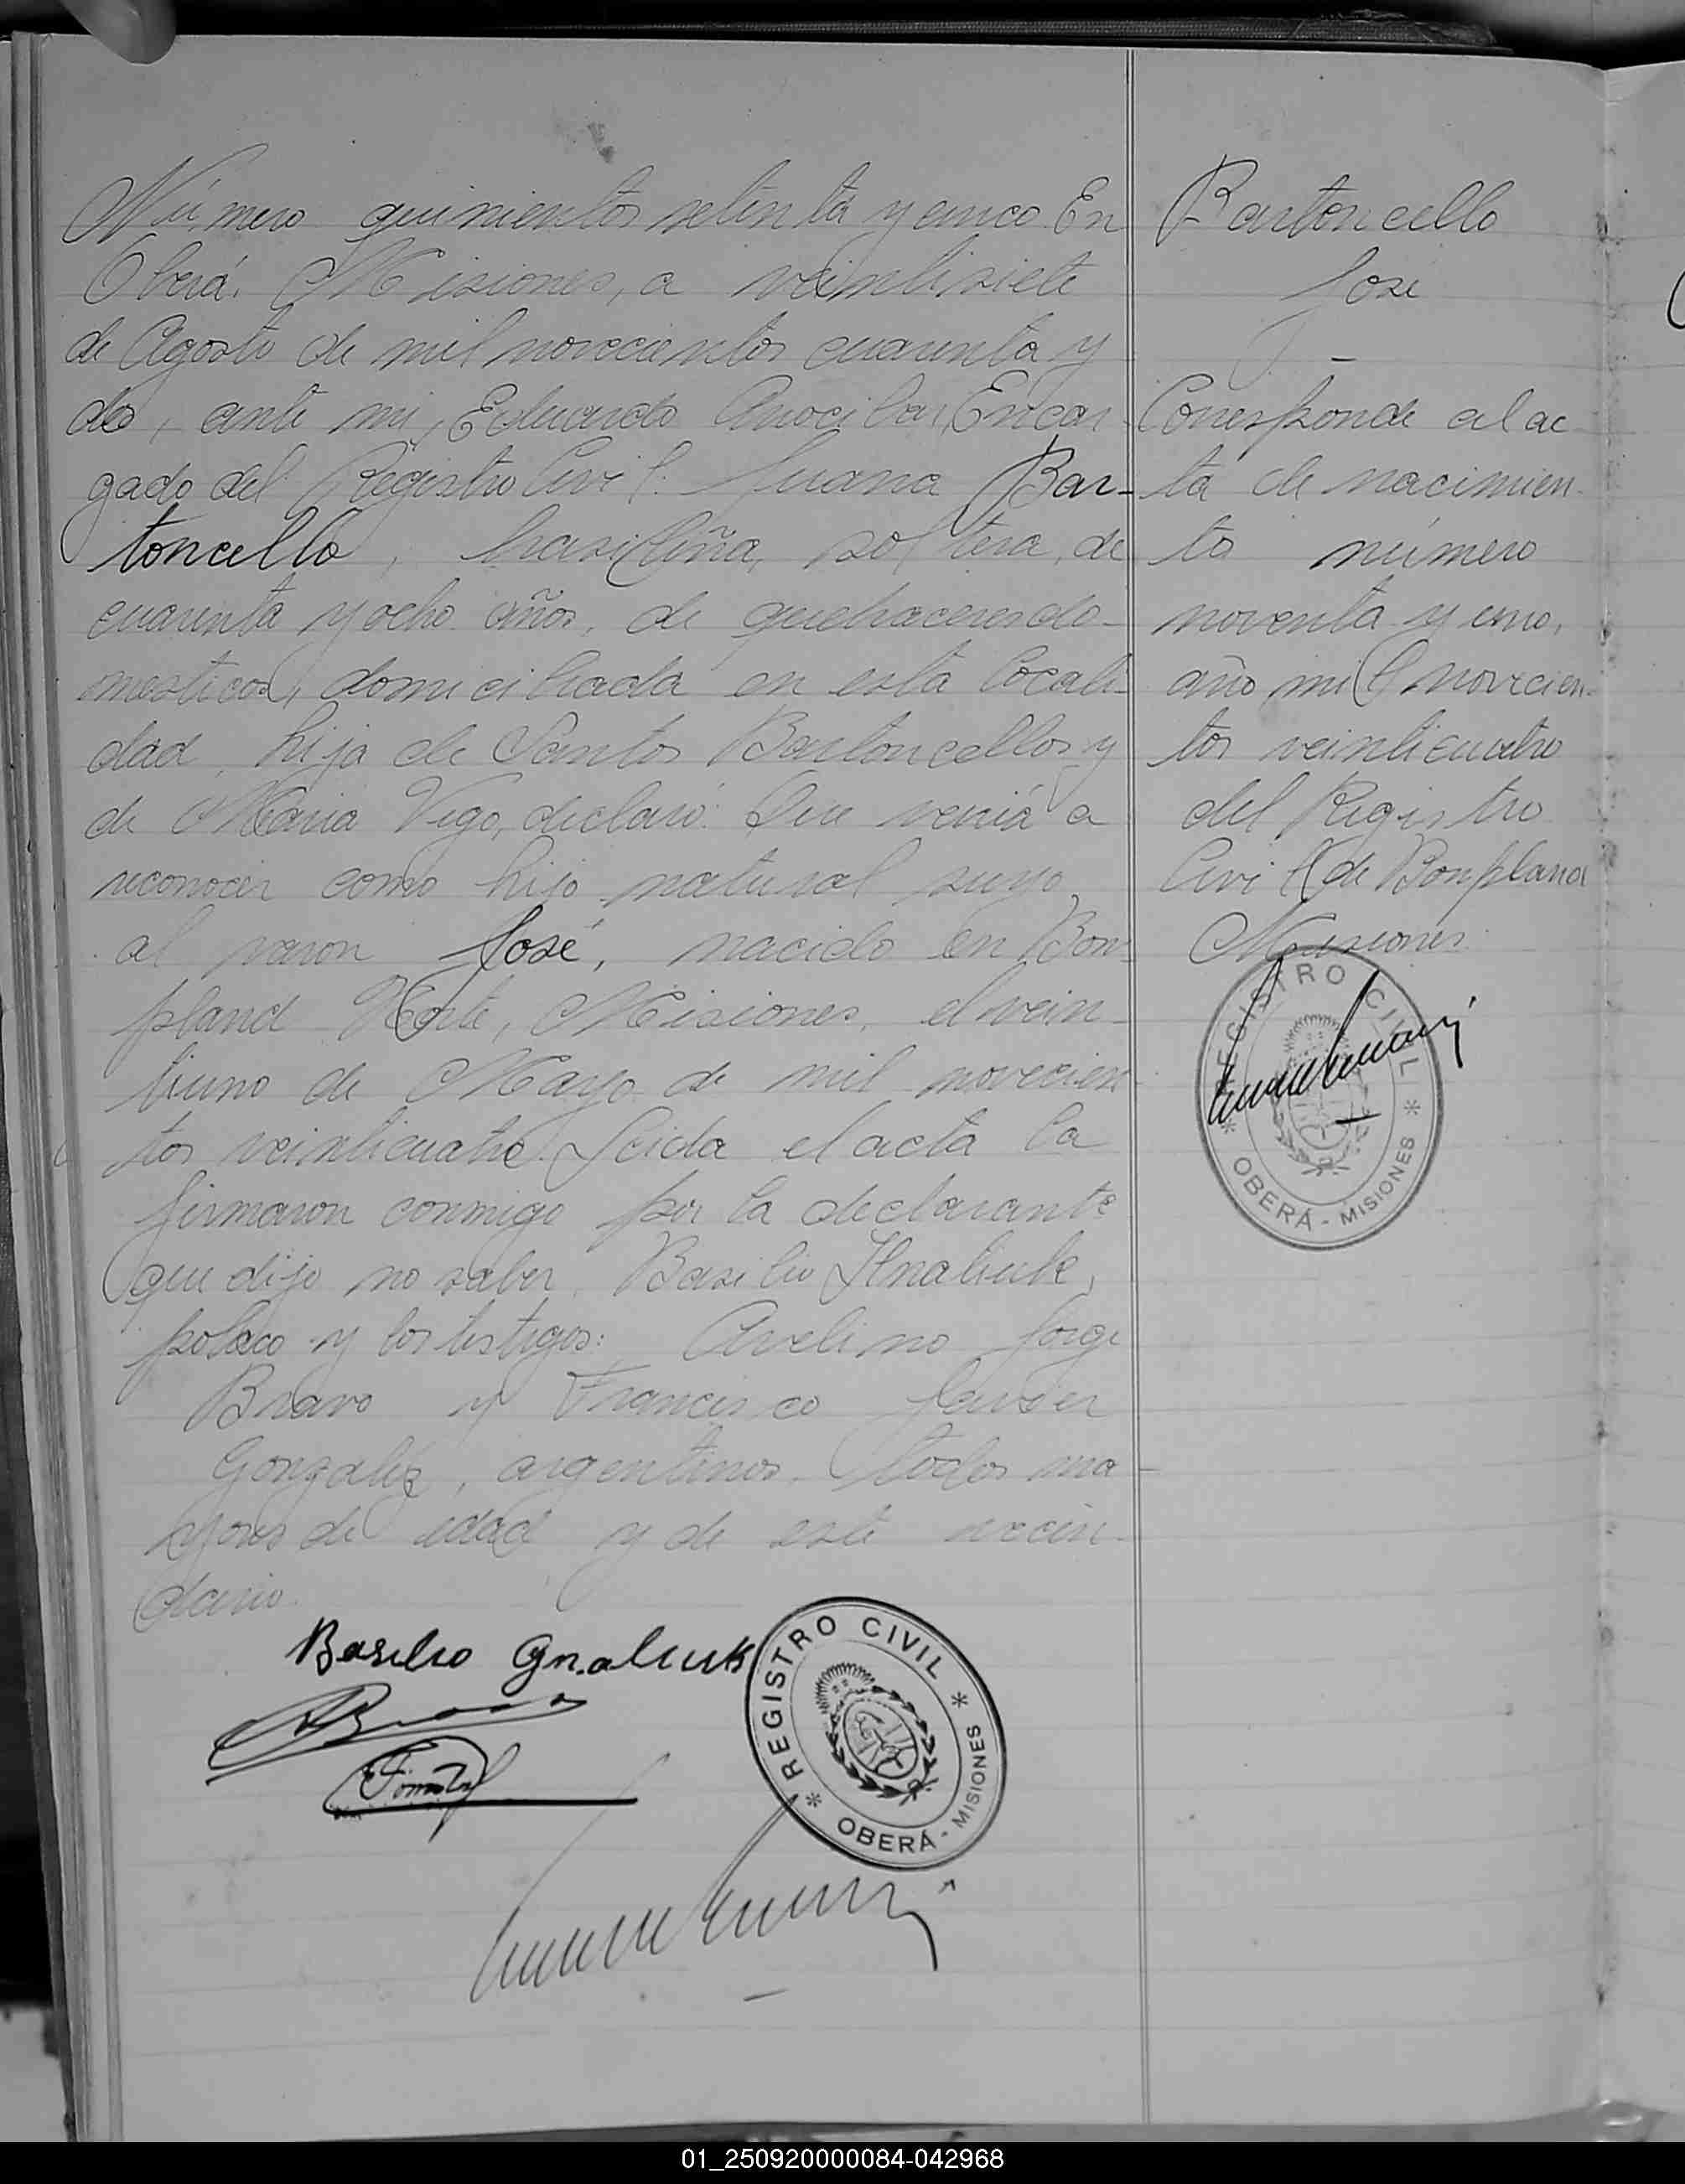 Número quinientos setenta y cinco En
Oberá. Misiones, a veintisiete
de Agosto de mil novecientos cuarenta y
dos, ante mi, Eduardo Encar
gado del Registro Civil. Juana Bar-
toncello, brasileña, soltera, de
cuarenta y ocho años, de quehaceres do-
mesticos, domiciliada en esta locali-
dad, hija de Santos Bartoncellos y
de Maria Vigo, declaró: Que venía a
reconocer como hijo natural suyo
al varon José, nacido en Bon-
pland Norte, Misiones, el vein-
tiuno de Mayo de mil novecien-
tos veinticuatro. Leida el acta la
firmaron conmigo por la declarante
que dijo no saber, Basilio Hnaliuk,
polaco y los testigos: Avelino Jorge
Bravo y Francisco Javier
Gonzalez, argentinos. todos ma-
yores de edad y de este vecin-
dario.
Basilio Gnaliuk
REGISTRO CIVIL
* OBERÁ - MISIONES *
Bartoncello
Jose
-
Corresponde al ac
ta de nacimien-
to número
noventa y uno,
año mil novecien-
tos veinticuatro
del Registro
Civil de Bonpland
Misiones.
REGISTRO CIVIL
* OBERÁ - MISIONES *
01_250920000084-042968